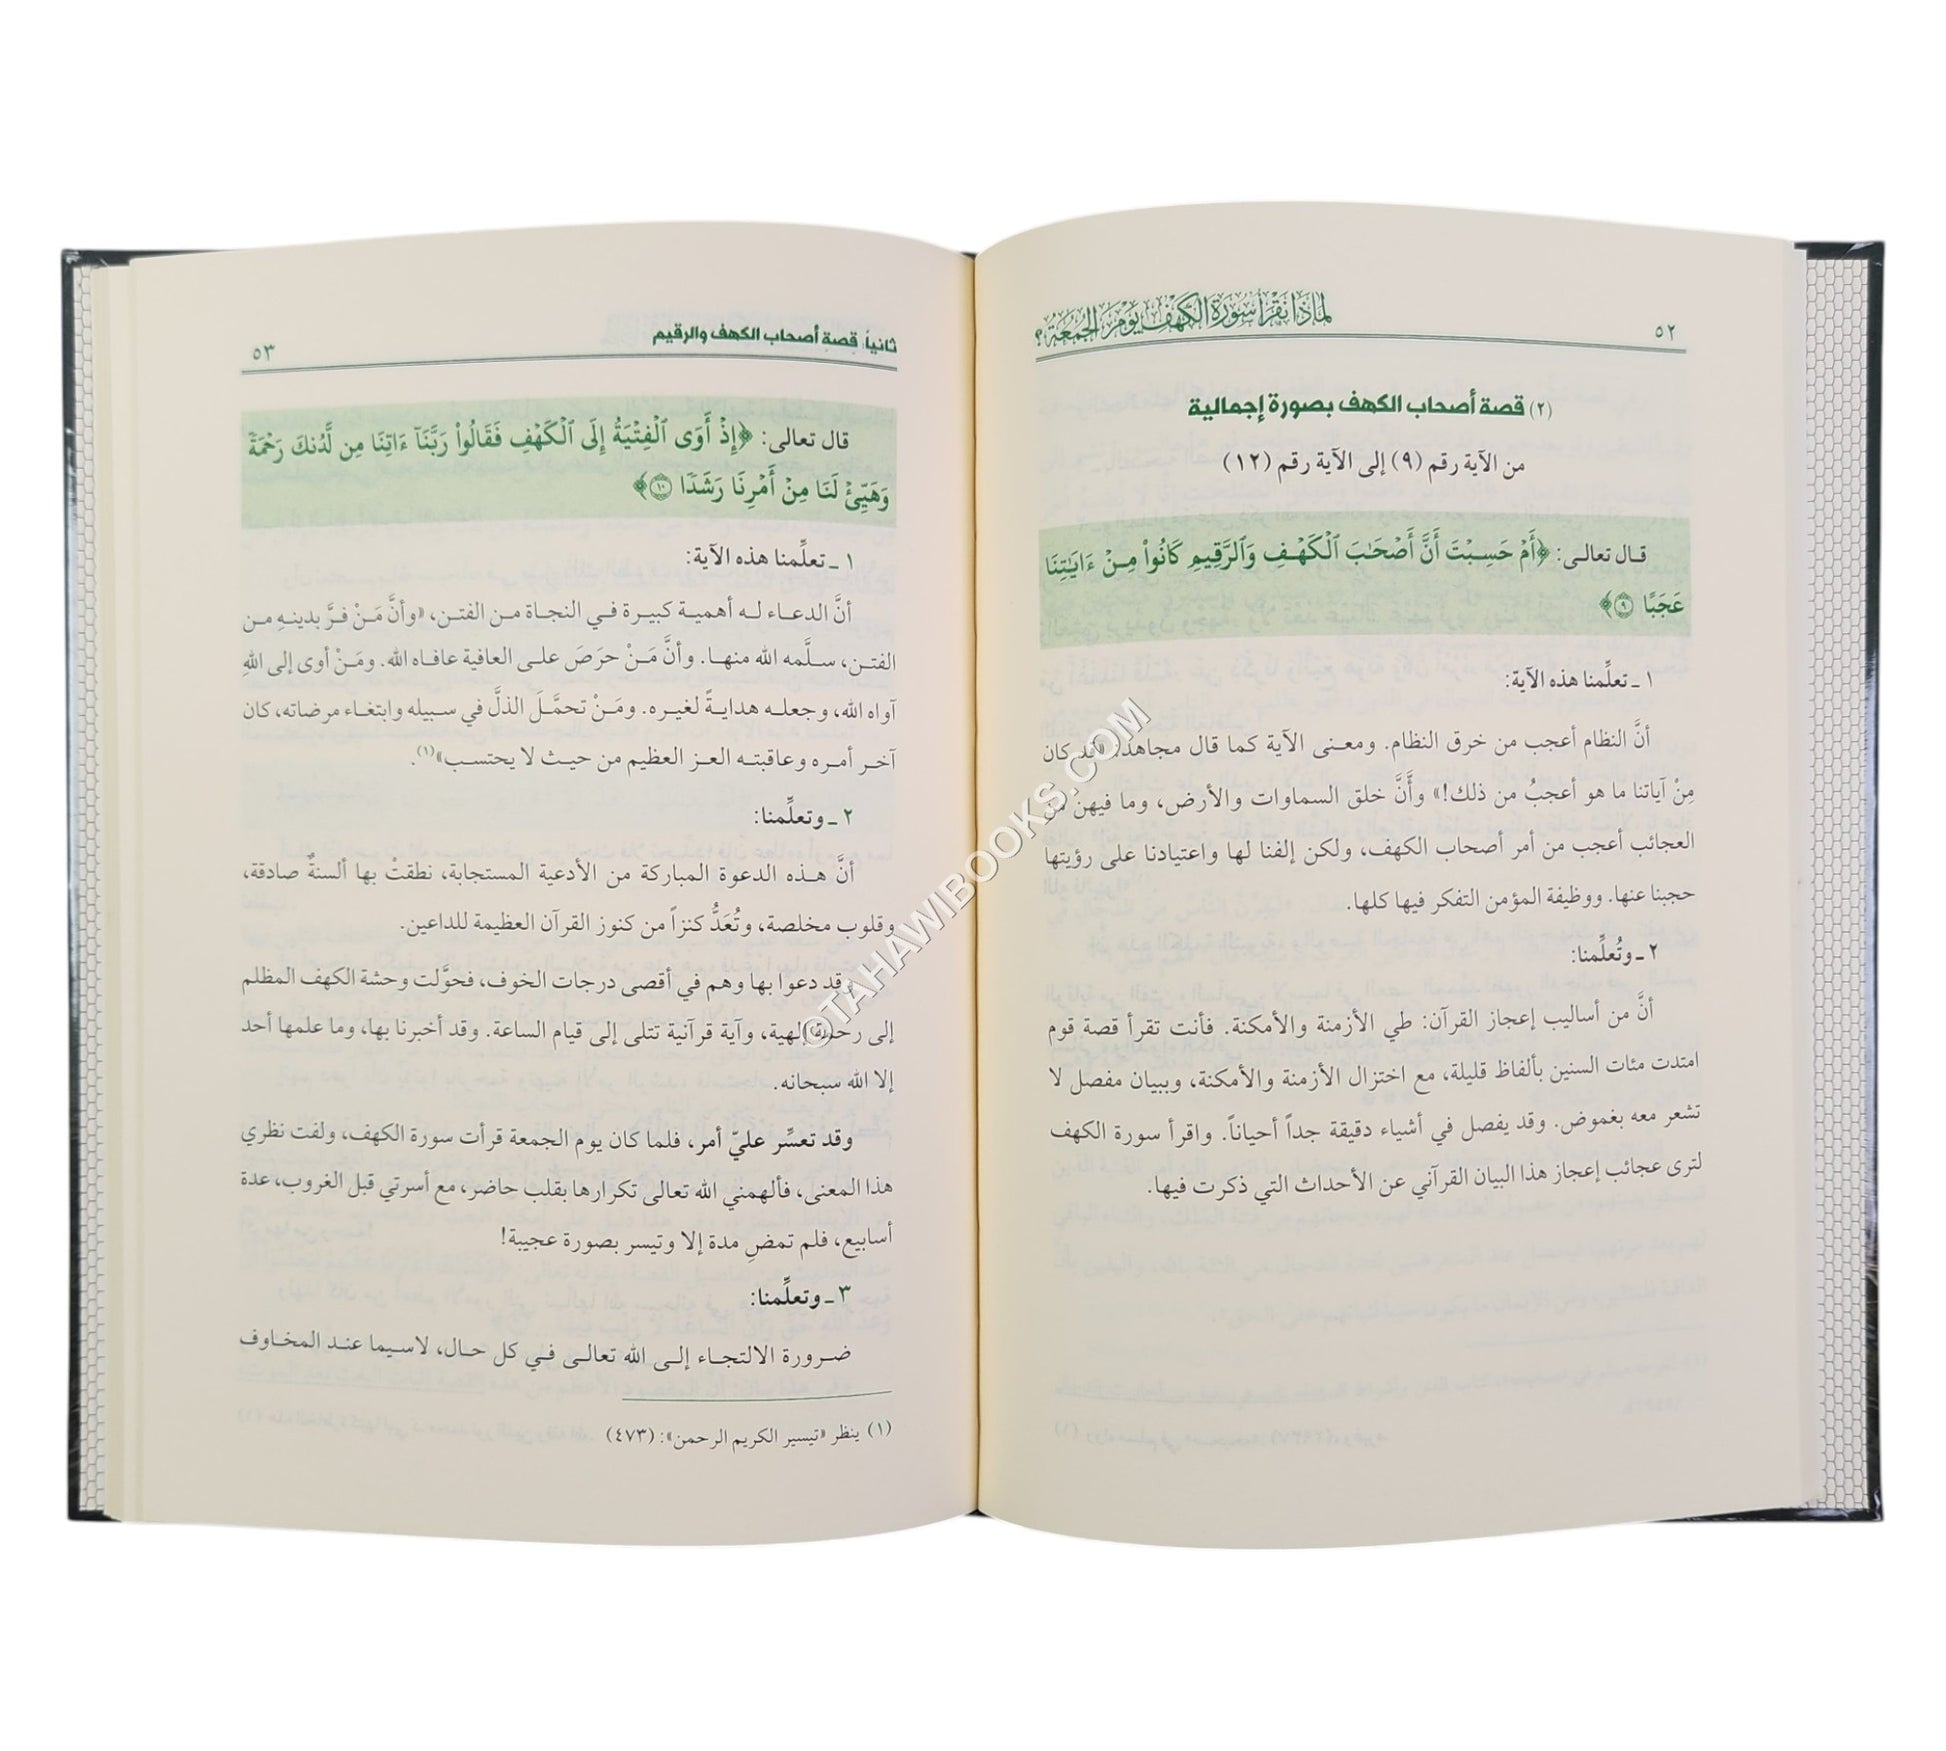 ٥٢
لماذا نقرأ سورة الكهف يوم الجمعة؟
(٢) قصة أصحاب الكهف بصورة إجمالية
من الآية رقم (٩) إلى الآية رقم (١٢)
قال تعالى: ﴿أَمْ حَسِبْتَ أَنَّ أَصْحَٰبَ ٱلْكَهْفِ وَٱلرَّقِيمِ كَانُواْ مِنْ ءَايَٰتِنَا
عَجَبًا ٩﴾
١ ـ تعلِّمنا هذه الآية:
أنَّ النظام أعجب من خرق النظام. ومعنى الآية كما قال مجاهد: «قد كان
مِنْ آياتنا ما هو أعجبُ من ذلك!» وأَنَّ خلق السماوات والأرض، وما فيهن من
العجائب أعجب من أمر أصحاب الكهف، ولكن إلفنا لها واعتيادنا على رؤيتها
حجبنا عنها. ووظيفة المؤمن التفكر فيها كلها.
٢ ـ وتُعلِّمنا:
أنَّ من أساليب إعجاز القرآن: طي الأزمنة والأمكنة. فأنت تقرأ قصة قوم
امتدت مئات السنين بألفاظ قليلة، مع اختزال الأزمنة والأمكنة، وببيان مفصل لا
تشعر معه بغموض. وقد يفصل في أشياء دقيقة جداً أحياناً. واقرأ سورة الكهف
لترى عجائب إعجاز هذا البيان القرآني عن الأحداث التي ذكرت فيها.
ثانياً: قصة أصحاب الكهف والرقيم
٥٣
قال تعالى: ﴿إِذْ أَوَى ٱلْفِتْيَةُ إِلَى ٱلْكَهْفِ فَقَالُواْ رَبَّنَآ ءَاتِنَا مِن لَّدُنكَ رَحْمَةً
وَهَيِّئْ لَنَا مِنْ أَمْرِنَا رَشَدًا ١٠﴾
١ ـ تعلِّمنا هذه الآية:
أنَّ الدعاء له أهمية كبيرة في النجاة من الفتن، «وأنَّ مَنْ فرَّ بدينهِ من
الفتن، سلَّمه الله منها. وأنَّ مَنْ حرَصَ على العافية عافاه الله. ومَنْ أوى إلى اللهِ
آواه الله، وجعله هدايةً لغيره. ومَنْ تحمَّلَ الذلَّ في سبيله وابتغاء مرضاته، كان
آخر أمره وعاقبته العز العظيم من حيث لا يحتسب»(١).
٢ ـ وتعلِّمنا:
أنَّ هذه الدعوة المباركة من الأدعية المستجابة، نطقتْ بها ألسنةٌ صادقة،
وقلوب مخلصة، وتُعَدُّ كنزاً من كنوز القرآن العظيمة للداعين.
وقد دعوا بها وهم في أقصى درجات الخوف، فحوَّلت وحشة الكهف المظلم
إلى رحمة إلهية، وآية قرآنية تتلى إلى قيام الساعة. وقد أخبرنا بها، وما علمها أحد
إلا الله سبحانه.
وقد تعسِّر عليّ أمر، فلما كان يوم الجمعة قرأت سورة الكهف، ولفت نظري
هذا المعنى، فألهمني الله تعالى تكرارها بقلب حاضر، مع أسرتي قبل الغروب، عدة
أسابيع، فلم تمضِ مدة إلا وتيسر بصورة عجيبة!
٣ ـ وتعلِّمنا:
ضرورة الالتجاء إلى الله تعالى في كل حال، لاسيما عند المخاوف
(١) ينظر «تيسير الكريم الرحمن»: (٤٧٣)
©TAHAWIBOOKS.COM